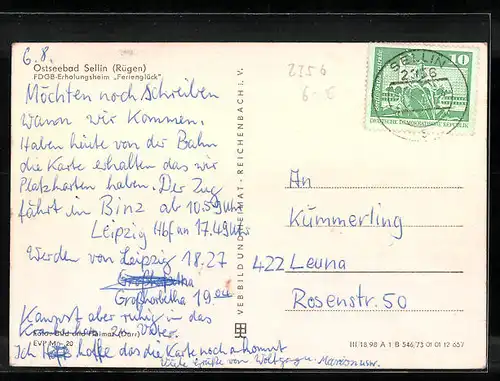 6.8.
Ostseebad Sellin (Rügen)
FDGB-Erholungsheim „Ferienglück"
Möchten noch Schreiben
wann wir Kommen.
Haben heute von der Bahn
die Karte erhalten das wir
Platzkarten haben. Der Zug
fährt in Binz ab 10.59 Uhr
Leipzig Hbf an 17.49 Uhr
Werden von Leipzig 18.27
19.
aber ruhig in das
EVP M -,20
Ich hoffe das die Karte noch ankommt
Viele Grüße von Wolfgang u. Marion usw.
VEB BILD UND HEIMAT · REICHENBACH i. V.
2356
SELLIN
2356
10
DEUTSCHE DEMOKRATISCHE REPUBLIK
An
Kümmerling
422 Leuna
Rosenstr. 50
III/18 98 A 1 B 546/73 01 01 12 657